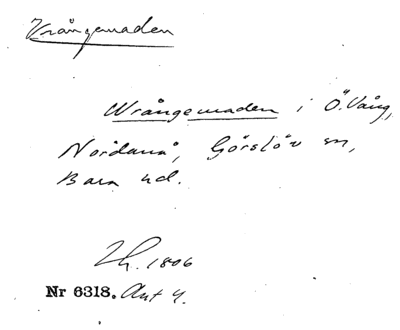 Vrångemaden
Wrångemaden i Ö. Vång,
Nordanå, Görslöv sn,
Bara hd.
1806
Nr 6318. Akt 4.